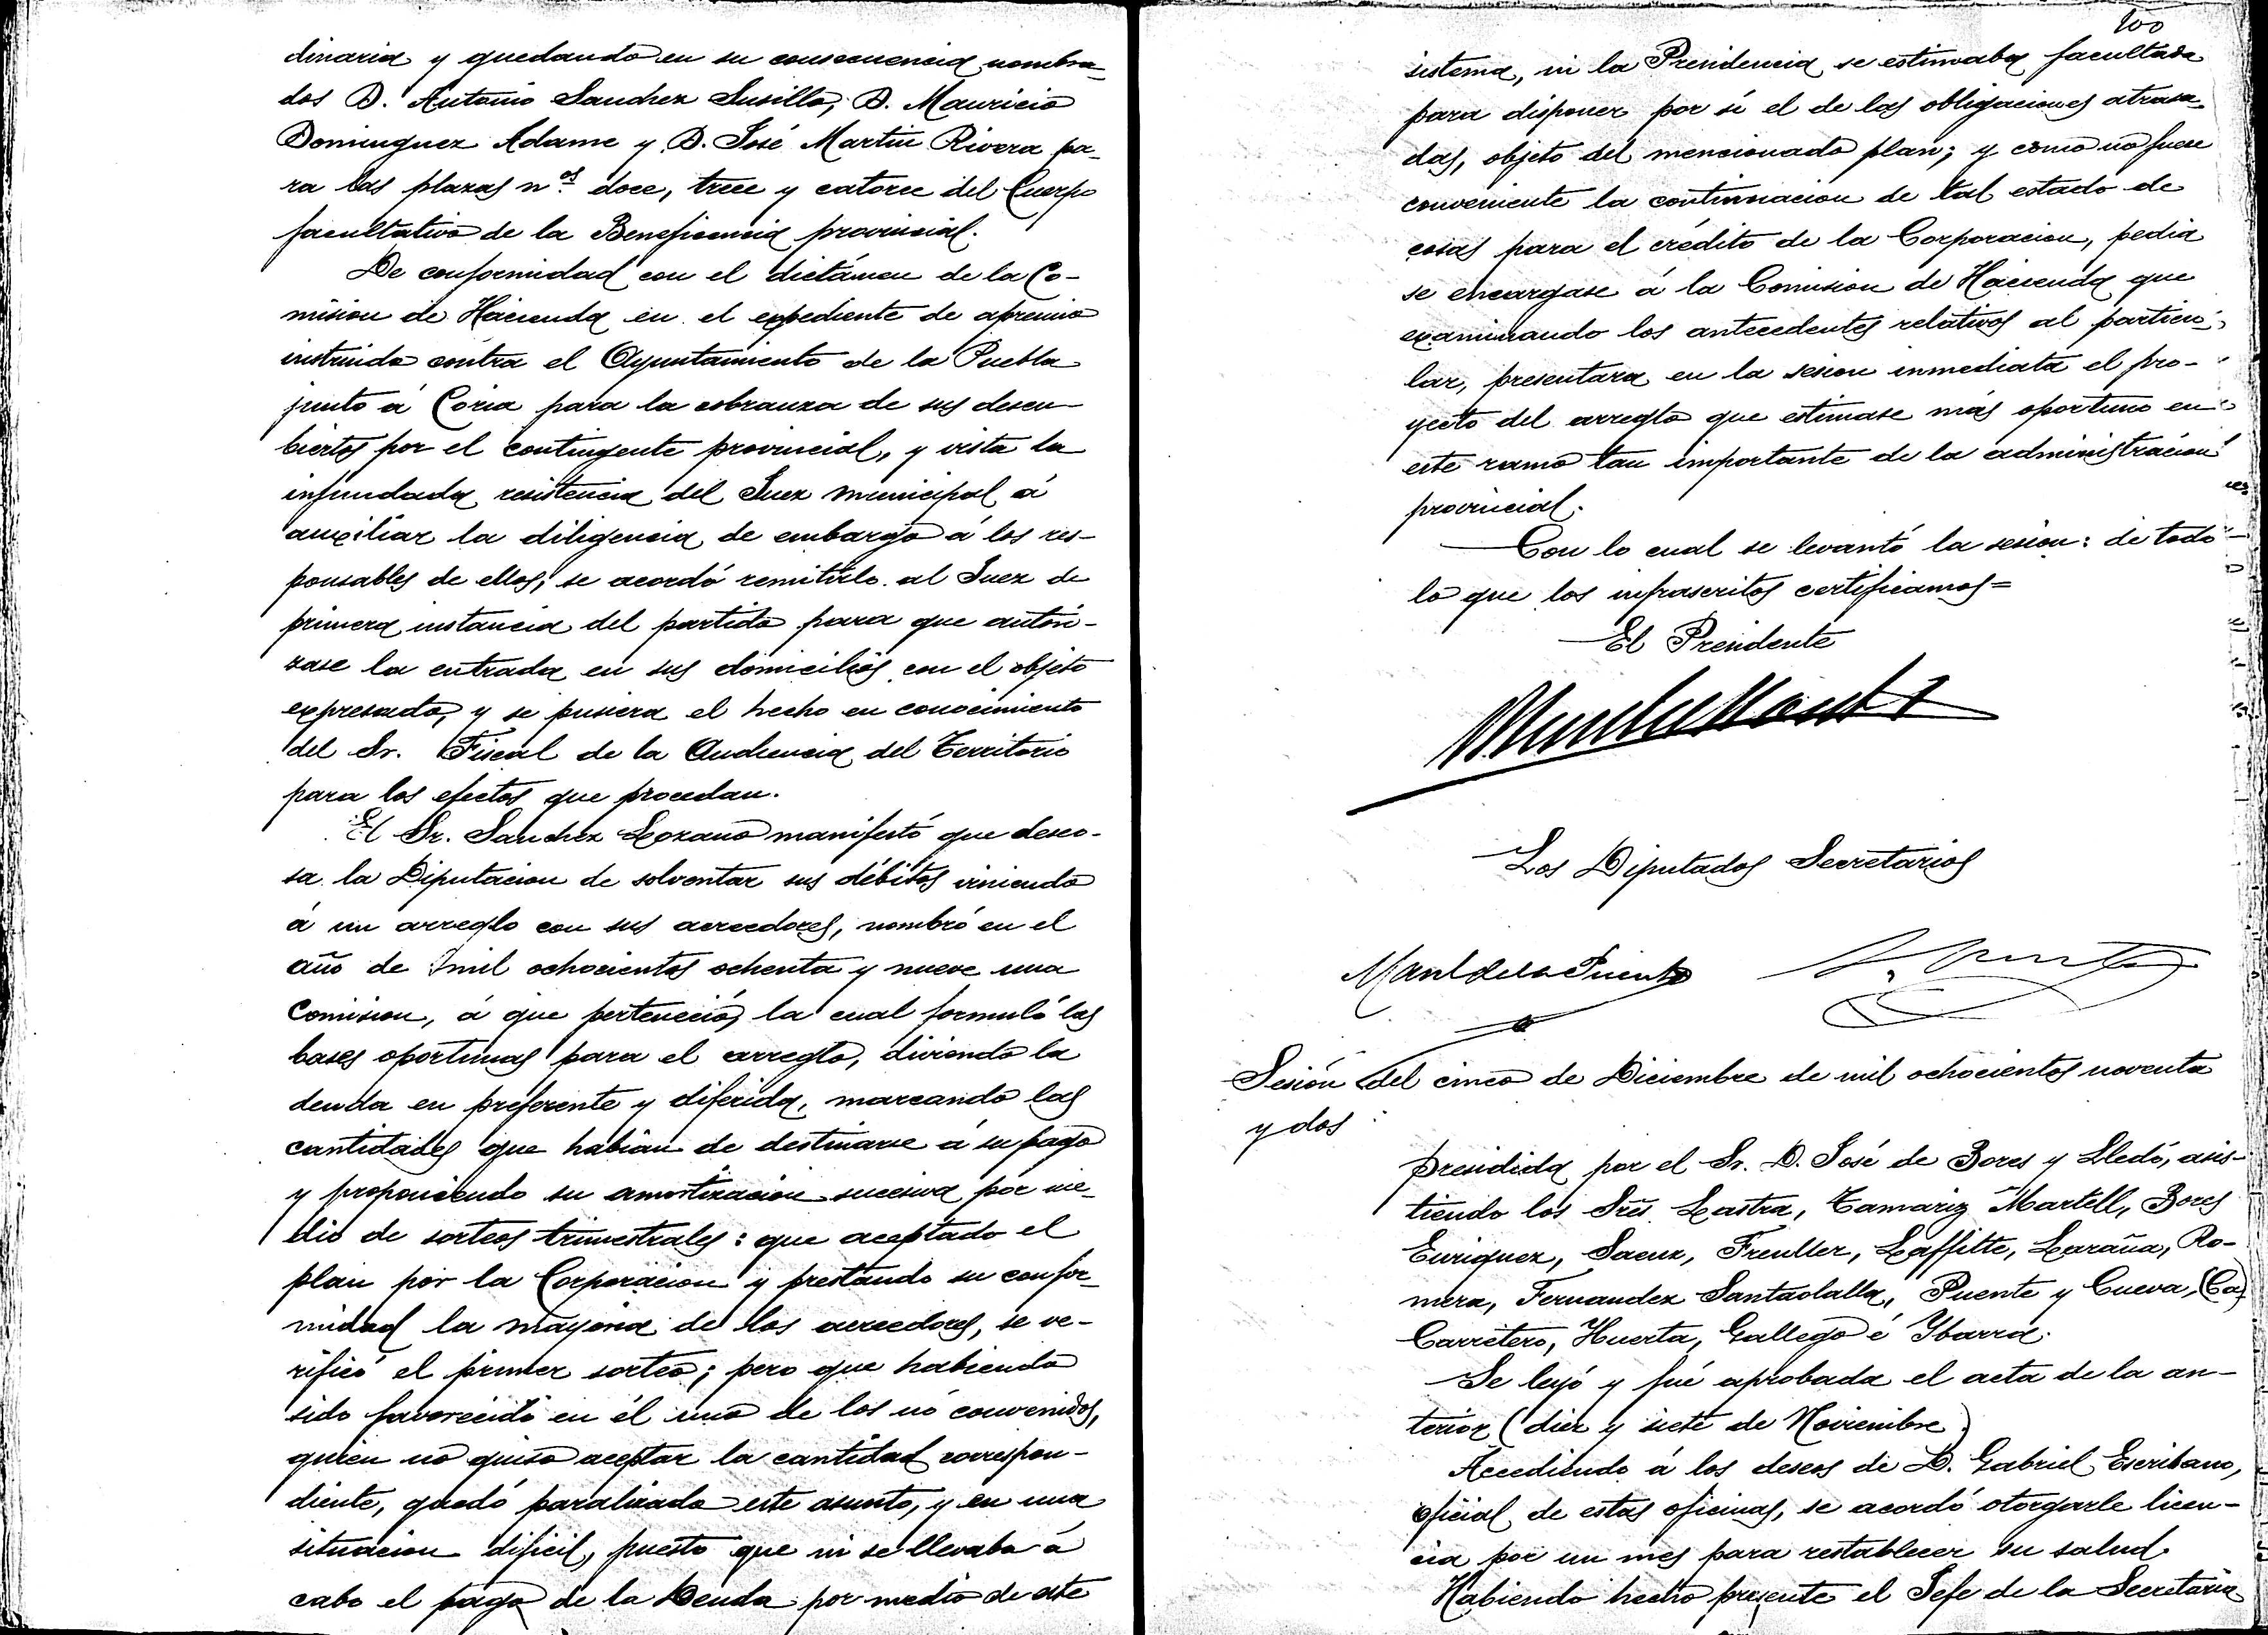 dinaria y quedando en su consecuencia nombra-
dos D. Antonio Sanchez Susillo, D. Mauricio
Dominguez Adame y D. José Martin Rivera pa-
ra las plazas nos. doce, trece y catorce del Cuerpo
facultativo de la Beneficencia provincial.
De conformidad con el dictámen de la Co-
mision de Hacienda en el expediente de apremio
instruido contra el Ayuntamiento de la Puebla
junto á Coria para la cobranza de sus descu-
biertos por el contingente provincial, y vista la
infundada resistencia del Juez municipal á
auxiliar la diligencia de embargo á los res-
ponsables de ellos, se acordó remitirlo al Juez de
primera instancia del partido para que autori-
zase la entrada en sus domicilios con el objeto
expresado, y se pusiera el hecho en conocimiento
del Sr. Fiscal de la Audiencia del Territorio
para los efectos que procedan.
El Sr. Sanchez Lozano manifestó que deseo-
sa la Diputacion de solventar sus débitos viniendo
á un arreglo con sus acreedores, nombró en el
año de mil ochocientos ochenta y nueve una
Comision, á que perteneció, la cual formuló las
bases oportunas para el arreglo, diviendo la
deuda en preferente y diferida, marcando las
cantidades que habian de destinarse á su pago
y proponiendo su amortizacion sucesiva por me-
dio de sorteos trimestrales: que aceptado el
plan por la Corporacion y prestando su confor-
midad la mayoria de los acreedores, se ve-
rificó el primer sorteo; pero que habiendo
sido favorecido en él uno de los no convenidos,
quien no quiso aceptar la cantidad correspon-
diente, quedó paralizado este asunto, y en una
situacion dificil, puesto que ni se llevaba á
cabo el pago de la Deuda por medio de este
100
sistema, ni la Presidencia se estimaba facultada
para disponer por sí el de las obligaciones atrasa-
das, objeto del mencionado plan; y como no fuese
conveniente la continuacion de tal estado de
cosas para el crédito de la Corporacion, pedia
se encargase á la Comision de Hacienda que
examinando los antecedentes relativos al particu-
lar, presentara en la sesion inmediata el pro-
yecto del arreglo que estimase más oportuno en
este ramo tan importante de la administracion
provincial.
Con lo cual se levantó la sesion: de todo
lo que los infrascritos certificamos=
El Presidente
Los Diputados Secretarios
Manl de la Puente
Sesión del cinco de Diciembre de mil ochocientos noventa
y dos:
Presidida por el Sr. D. José de Bores y Lledó, asis-
tiendo los Sres. Lastra, Tamariz Martell, Bores
Enriquez, Saenz, Freuller, Laffitte, Laraña, Ro-
mera, Fernandez Santaolalla, Puente y Cueva, (Ca)
Carretero, Huerta, Gallego é Ybarra.
Se leyó y fué aprobada el acta de la an-
terior (diez y siete de Noviembre)
Accediendo á los deseos de D. Gabriel Escribano,
oficial de estas oficinas, se acordó otorgarle licen-
cia por un mes para restablecer su salud.
Habiendo hecho presente el Jefe de la Secretaria